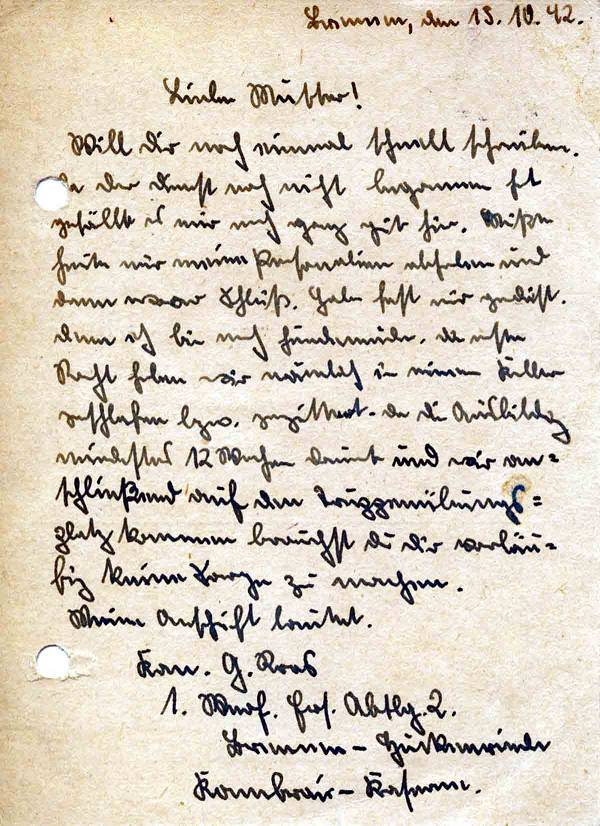 Bremen, den 15.10.42.
Liebe Mutter!
Will dir noch einmal schnell schreiben.
Da der Dienst noch nicht begonnen hat
gefällt es mir noch ganz gut hier. Mußte
heute nur meine Personalien abgeben und
dann war Schluß. Habe fast nur gedöst.
denn ich bin noch hundemüde. die erste
Nacht haben wir nämlich in einem Keller
geschlafen bzw. gezittert. da die Ausbildg
mindestes 12 Wochen dauert und wir an=
schließend auf den Truppenübungs=
platz kommen brauchst du dir vorläu=
fig keine Sorge zu machen.
Meine Anschrift lautet.
Kan. G.
1. Werf. Ers. Abtlg. 2.
Bremen - Huckelriede
Kaserne.